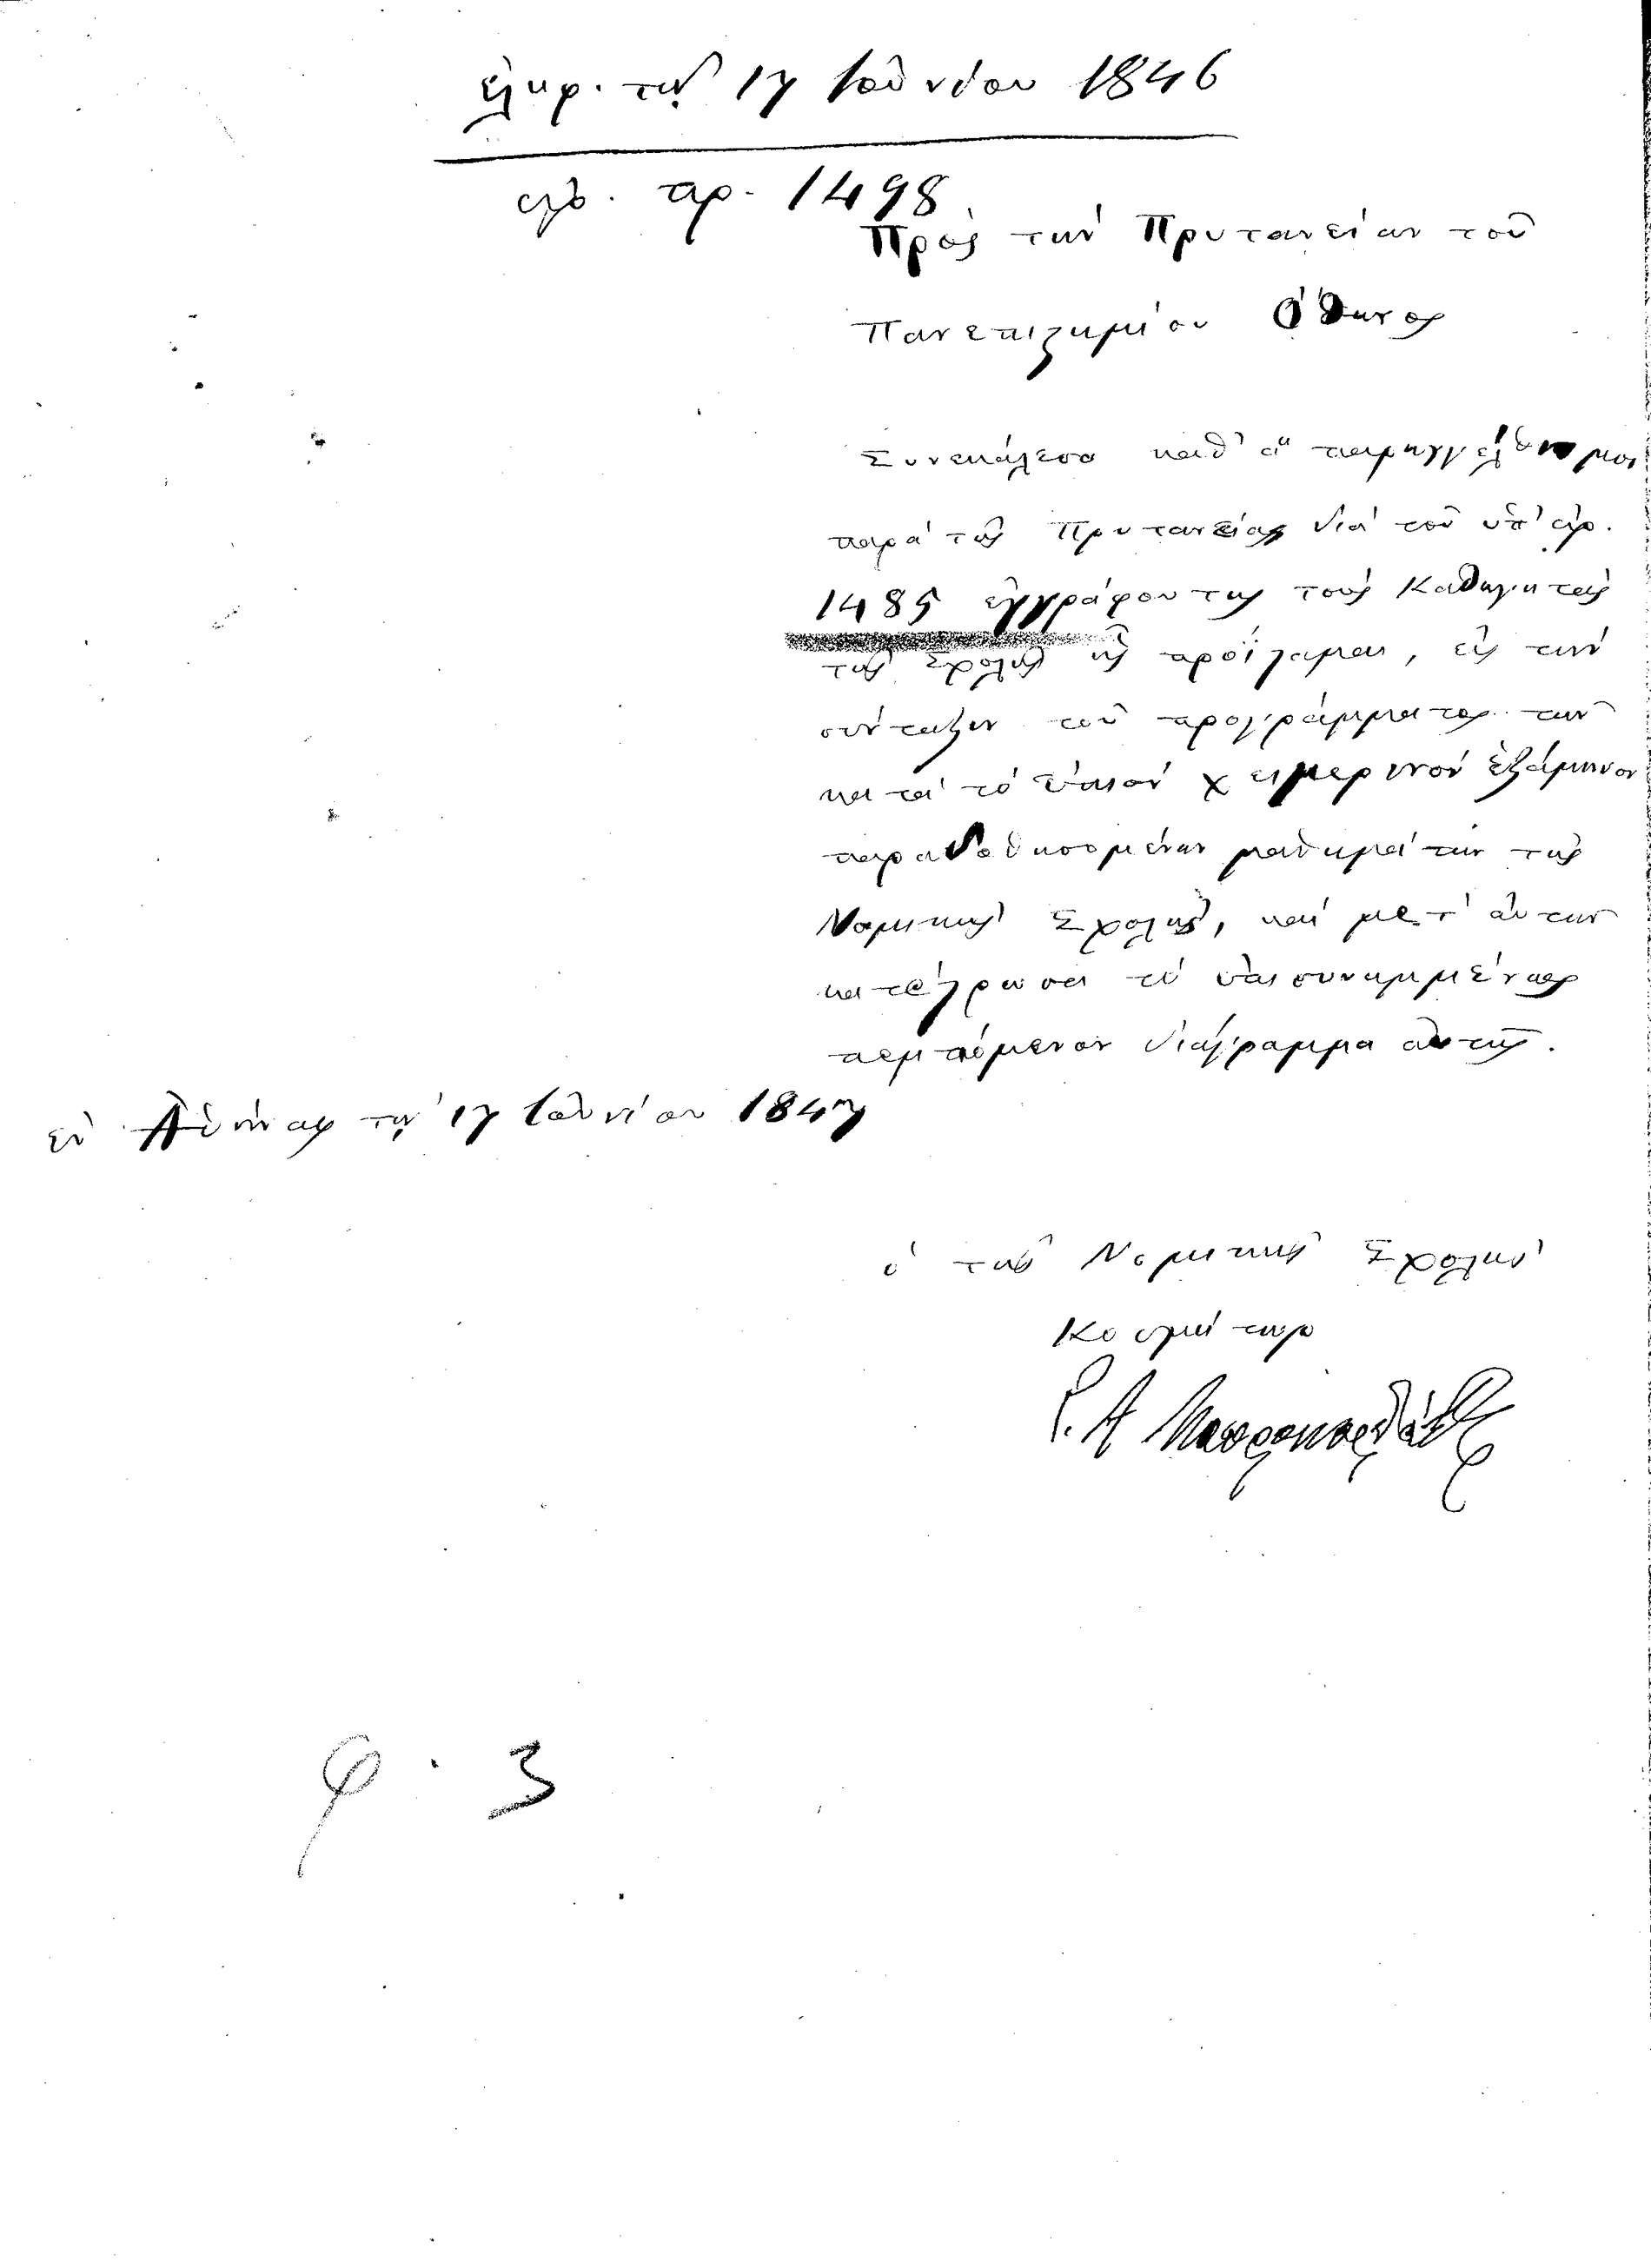 ἐλήφ. τῇ 17 Ἰουνίου 1846
ἀρ. 1498
Πρὸς τὴν Πρυτανείαν τοῦ
Πανεπιστημίου Ὄθωνος
Συνεκάλεσα καθ' ἃ παρηγγέλθη μοι
παρὰ τῆς Πρυτανείας διὰ τοῦ ὑπ' ἀρ.
1485 ἐγγράφου της τοὺς Καθηγητὰς
τῆς Σχολῆς ἧς προΐσταμαι, εἰς τὴν
σύνταξιν τοῦ προγράμματος τῶν
κατὰ τὸ ἐπιὸν χειμερινὸν ἑξάμηνον
παραδοθησομένων μαθημάτων τῆς
Νομικῆς Σχολῆς, καὶ μετ' αὐτῶν
κατέστρωσα τὸ ἐπισυνημμένως
πεμπόμενον διάγραμμα αὐτῆς.
ἐν Ἀθήναις τῇ 17 Ἰουνίου 1847
ὁ τῆς Νομικῆς Σχολῆς
Κοσμήτωρ
Μαυροκορδάτος
φ. 3